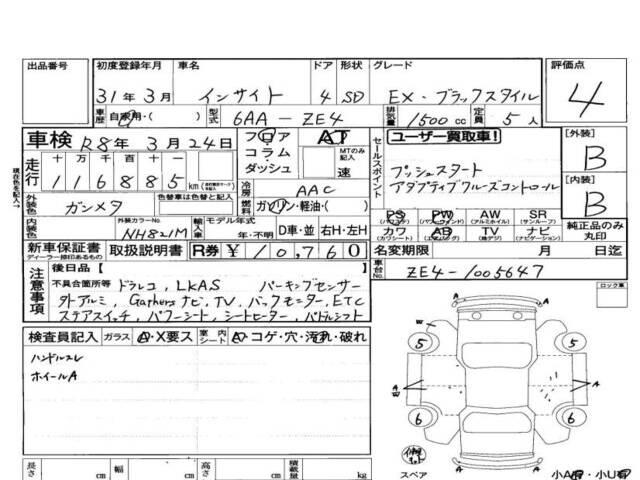 出品番号 初度登録年月 車名 ドア 形状 グレード 評価点
31年3月 インサイト 4 SD EX・ブラックスタイル 4
車歴 自家用・( ) 型式 6AA-ZE4 排気量 1500cc 定員 5人
車検 R8年 3月24日 フロア AT ユーザー買取車! [外装]
コラム MTのみ記入 B
ダッシュ 速 セールスポイント
走行 十 万 千 百 十 一
116885 km 冷房 AAC プッシュスタート
アダプティブクルーズコントロール [内装]
外装色 ガンメタ 色替車は色替と記入 燃料 ガソリン・軽油・( ) B
PS PW AW SR
(パワステ) (パワーウィンド) (アルミホイル) (サンルーフ)
内装色 外装カラーNo. NH821M 輸入車 モデル年式 年・不明 D車・並 右H・左H カワ AB TV ナビ 純正品のみ丸印
(カワシート) (エアバッグ) (地デジ) (ナビゲーション)
新車保証書 取扱説明書 R券 ¥10,760 名変期限 月 日迄
ディーラー捺印あるもの
車台No. ZE4-1005647
注意事項 後日品[ ]
不具合箇所等 ドラレコ, LKAS パーキングセンサー ロック車
外アルミ, Gathersナビ, TV, バックモニター, ETC
ステアスイッチ, パワーシート, シートヒーター, パドルシフト
検査員記入 ガラス A・X要ス 室内シート A・コゲ・穴・汚れ・破れ
ハンドルスレ
ホイールA
W A
5 5
A W A A
6 6
A
スペア 小A・小U
長さ cm 幅 cm 高さ cm 積載量 kg
現在色を記入→